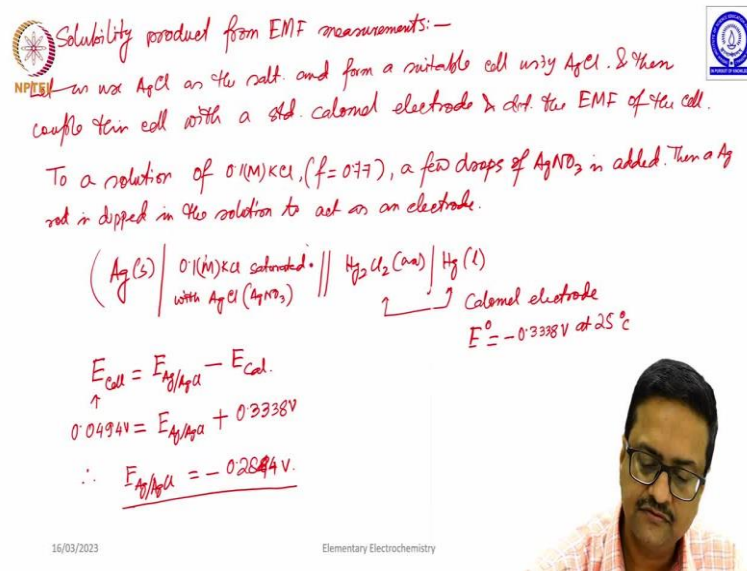 Solubility product from EMF measurements:—
NPTEL
Let us use AgCl as the salt. and form a suitable cell using AgCl. & then
couple this cell with a std. calomel electrode & det. the EMF of the cell.
To a solution of 0.1(M) KCl, (f = 0.77), a few drops of AgNO₃ is added. Then a Ag
rod is dipped in the solution to act as an electrode.
(Ag(s) | 0.1(M) KCl saturated. || Hg₂Cl₂(aq) | Hg(l)
with AgCl (AgNO₃)
Calomel electrode
E° = -0.3338V at 25°C
E_Cell = E_Ag/AgCl - E_Cal.
↑
0.0494V = E_Ag/AgCl + 0.3338V
∴ E_Ag/AgCl = -0.2844V.
16/03/2023
Elementary Electrochemistry